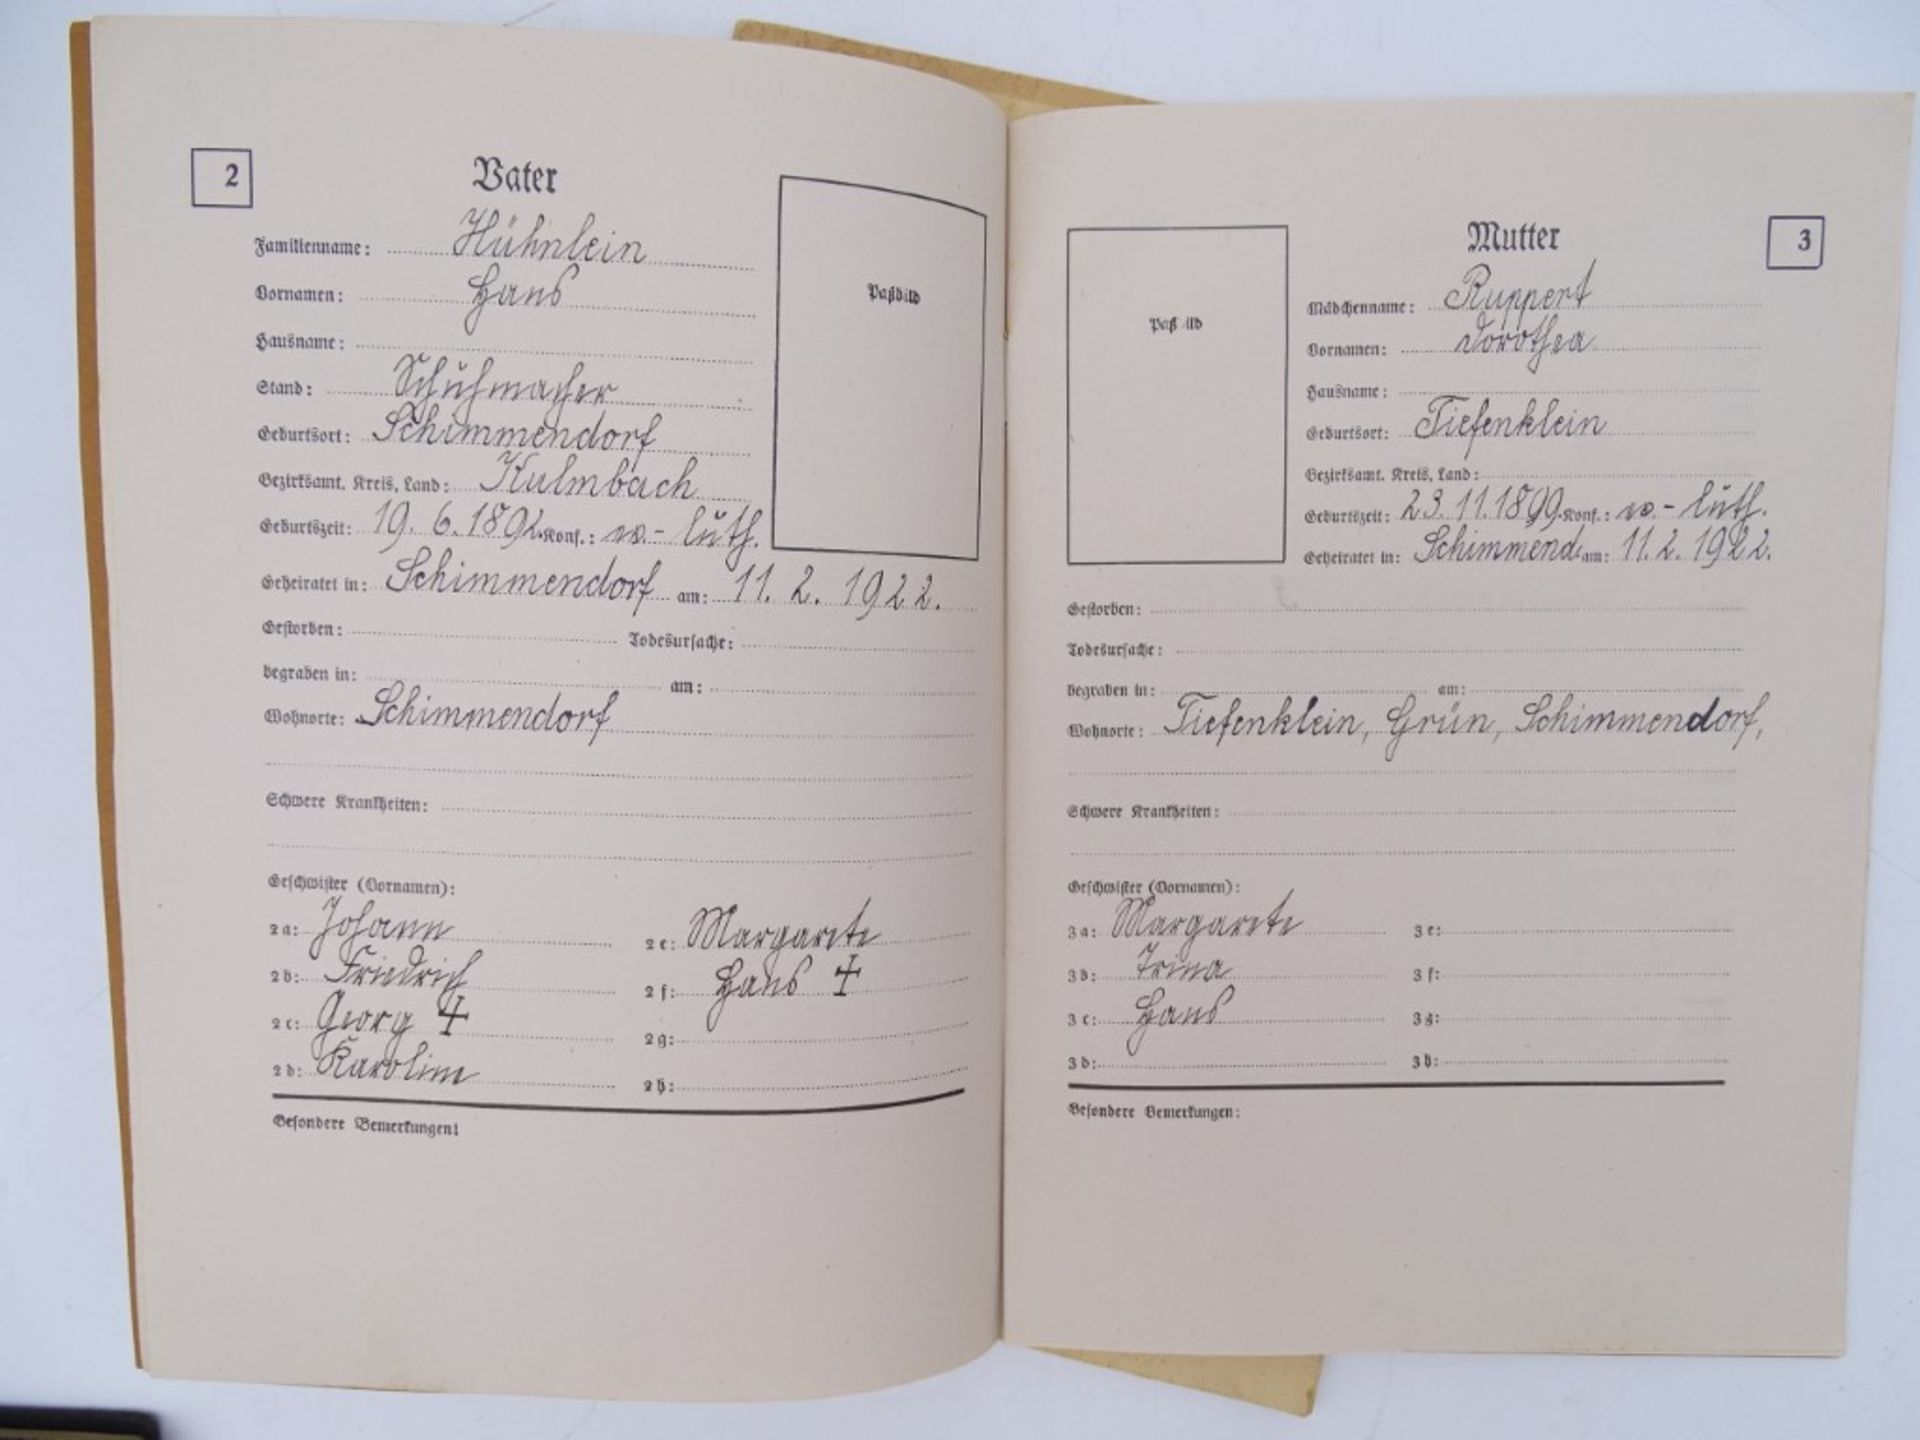 2
Vater
Paßbild
Familienname: Hühnlein
Vornamen: Hans
Hausname:
Stand: Schuhmacher
Geburtsort: Schimmendorf
Bezirksamt. Kreis, Land: Kulmbach
Geburtszeit: 19. 6. 1892. Konf.: ev.- luth.
Geheiratet in: Schimmendorf am: 11. 2. 1922.
Gestorben: Todesursache:
begraben in: am:
Wohnorte: Schimmendorf
Schwere Krankheiten:
Geschwister (Vornamen):
2a: Johann 2e: Margarete
2b: Friedrich 2f: Hans +
2c: Georg + 2g:
2d: Karoline 2h:
Besondere Bemerkungen:
3
Mutter
Paßbild
Mädchenname: Ruppert
Vornamen: Dorothea
Hausname:
Geburtsort: Tiefenklein
Bezirksamt. Kreis, Land:
Geburtszeit: 23. 11. 1899. Konf.: ev.- luth.
Geheiratet in: Schimmend. am: 11. 2. 1922.
Gestorben:
Todesursache:
begraben in: am:
Wohnorte: Tiefenklein, Grün, Schimmendorf,
Schwere Krankheiten:
Geschwister (Vornamen):
3a: Margarete 3e:
3b: 3f:
3c: Hans 3g:
3d: 3h:
Besondere Bemerkungen: